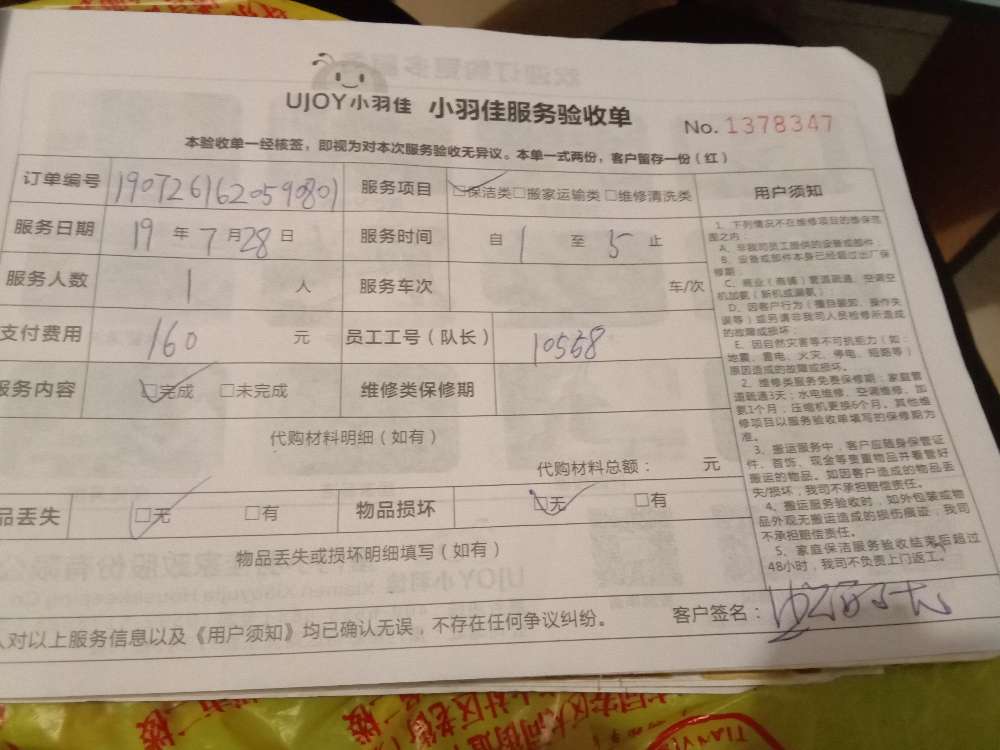 UJOY小羽佳 小羽佳服务验收单
No. 1378347
本验收单一经核签，即视为对本次服务验收无异议。本单一式两份，客户留存一份（红）
订单编号 1907261620590801 服务项目 □保洁类□搬家运输类□维修清洗类 用户须知
服务日期 19年7月28日 服务时间 自1至5止
服务人数 1人 服务车次 车/次
支付费用 160元 员工工号（队长） 10558
服务内容 □完成 □未完成 维修类保修期
代购材料明细（如有）
代购材料总额： 元
品丢失 □无 □有 物品损坏 □无 □有
物品丢失或损坏明细填写（如有）
人对以上服务信息以及《用户须知》均已确认无误，不存在任何争议纠纷。
客户签名：
1、下列情况不在维修项目的维保范
围之内：
A、非我司员工提供的设备或部件；
B、设备或部件本身已经超过出厂保
修期；
C、商业（商铺）管道疏通、空调空
机加氨（新机或漏氨）；
D、因客户行为（擅自装卸、操作失
误等）或另请非我司人员检修所造成
的故障或损坏；
E、因自然灾害等不可抗能力（如：
地震、雷电、火灾、停电、短路等）
原因造成的故障或损坏。
2、维修类服务免费保修期：家庭管
道疏通3天；水电维修、空调维修、加
氨1个月；压缩机更换6个月。其他维
修项目以服务验收单填写的保修期为
准。
3、搬运服务中，客户应随身保管证
件、首饰、现金等贵重物品并看管好
搬运的物品。如因客户造成的物品丢
失/损坏，我司不承担赔偿责任。
4、搬运服务验收时，如外包装或物
品外观无搬运造成的损伤痕迹，我司
不承担赔偿责任。
5、家庭保洁服务验收结束后超过
48小时，我司不负责上门返工。